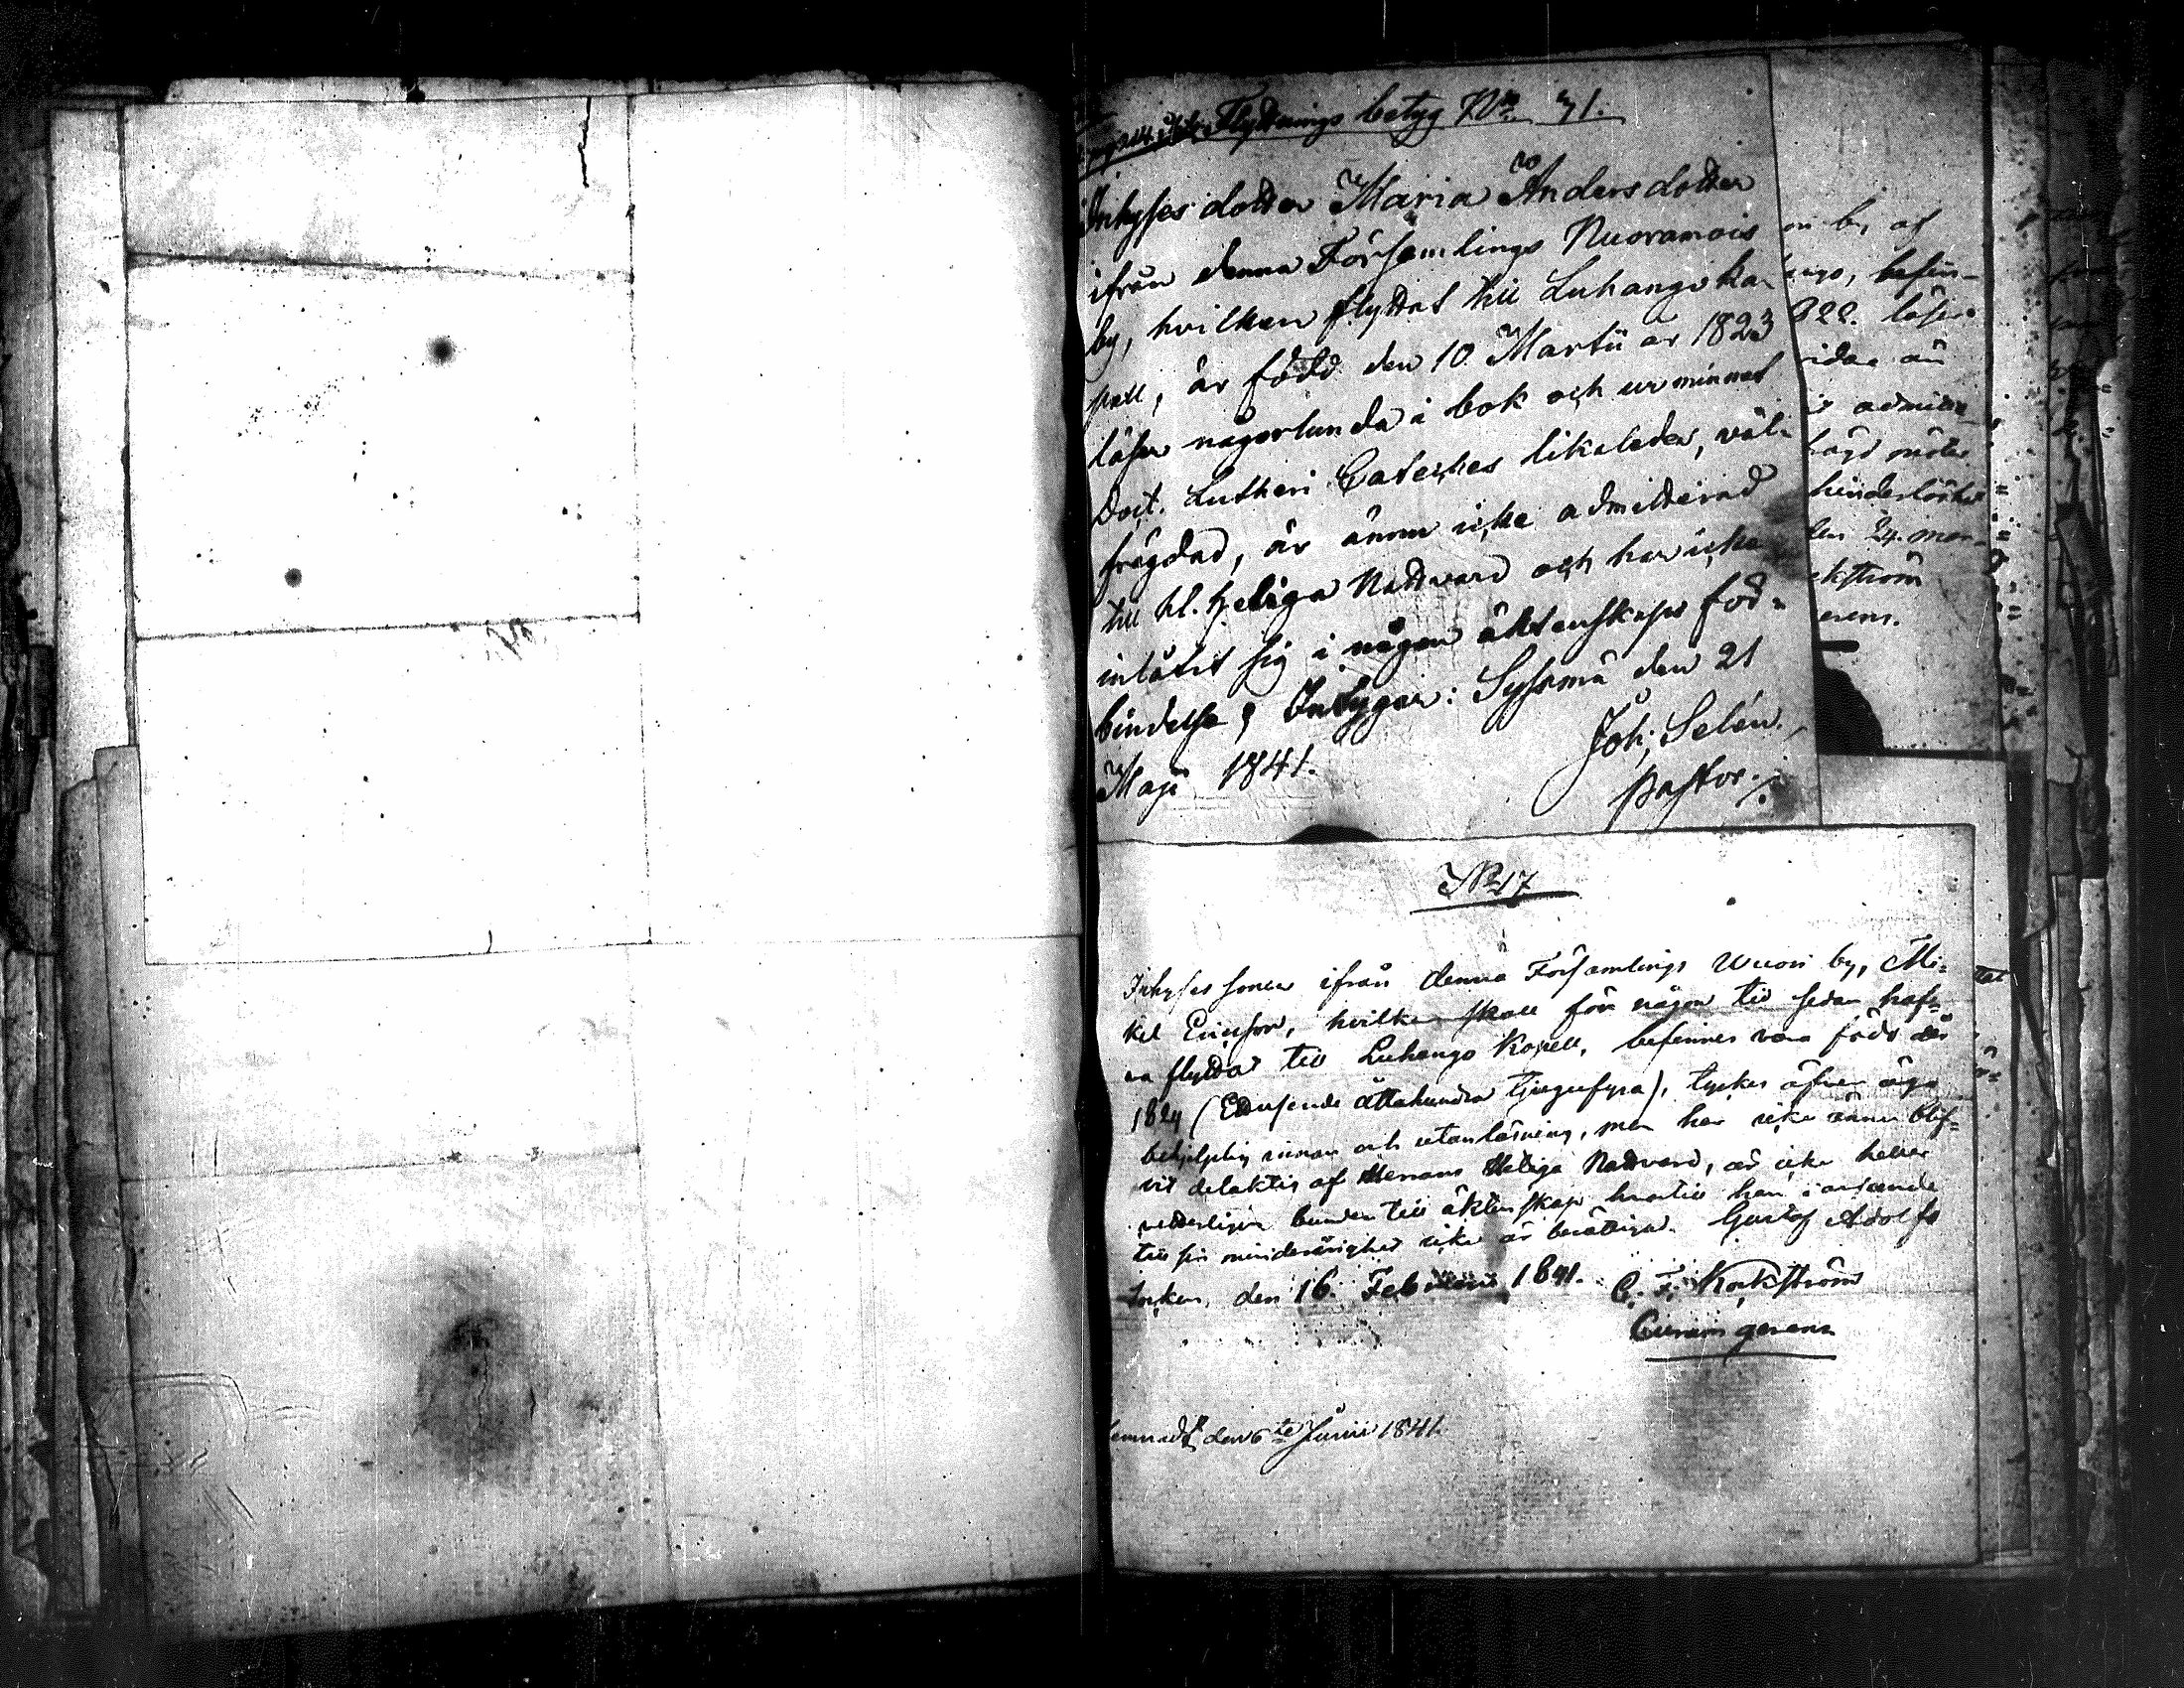 Flyttnings betyg No 71.
Inhyses dotter Maria Andersdotter
ifrån denna Församlings Nuoramois
by, hvilken flyttat till Luhango ka-
pell, är född den 10 Martii år 1823
läser någorlunda i bok och ur minnet
Doct. Lutheri Cateches likaledes, väl-
frägdad, är ännu icke admitterad
till hl. heliga Nattvard och har icke
inlåtit sig i någon äktenskaps för-
bindelse; Intygar: Sysmä den 21
Maji 1841.
Joh; Selén.
Pastor.
on by, af
ango, befin-
822. läser
admitte-
hinderslöshet
den 24. mar-
ckström
gerens.
No 17
Inhyses sonen ifrån denna Församlings Wuori by, Mi-
kel Ericsson, hvilken skall för någon tid sedan haf-
va flyttat till Luhango Kapell, befinnes vara född år
1824 (Ettusende åttahundra tjugufyra), tyckes äfven äga
behjelplig innan och utanläsning, men har icke ännu blif-
vit delaktig af Herrans Heliga Nattvard, är icke heller
vetterligen bunden till äktenskap hvartill han i anseende
till sin minderårighet icke är berättigad. Gustaf Adolfs
Socken, den 16. Februarii 1841.
C. F. Kockström
Curam gerens
lemnadt den 6te Junii 1841.